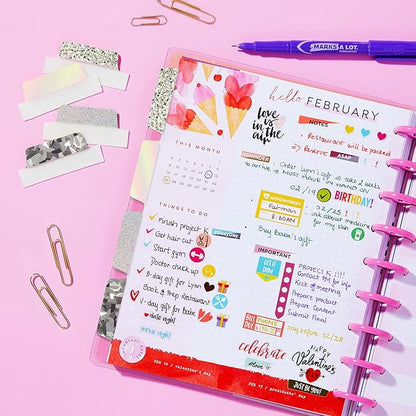 MARKS A LOT.
hello FEBRUARY
love
is in
the
air
NOTES
Restaurant will be packed
Reserve ASAP
THIS MONTH
REMINDER
Order Lynn's gift
to arrive
02/19
BIRTHDAY!
APPOINTMENT
Fairman
8:30AM
02/25!!
ask about medicine
for my skin
Buy Babe's gift
THINGS TO DO
Finish project K
Get hair cut
Start gym
Doctor check up
B-day gift for Lynn
Book & Prep Restaurant
V-day gift for Babe
date night!
movie night
IMPORTANT
GET IT DONE
PROJECT K!!!
Contact PM for info
Kick off meeting
Prepare product
Prepare Content
Submit Final
BILL DUE
PHONE
Pay before 02/28
celebrate
HAPPY
Valentine's
JUST BE YOU!
FEB 14 / valentine's day
FEB 17 / presidents' day